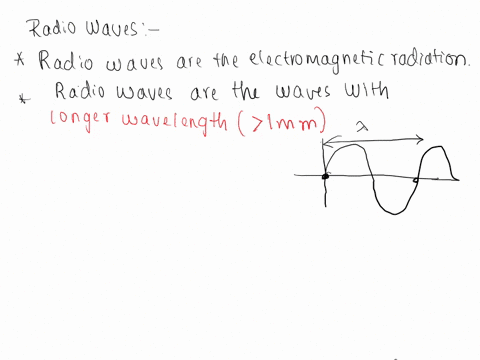 Radio Waves:-
* Radio waves are the electromagnetic radiation.
* Radio waves are the waves with
longer wavelength (>1mm)
λ